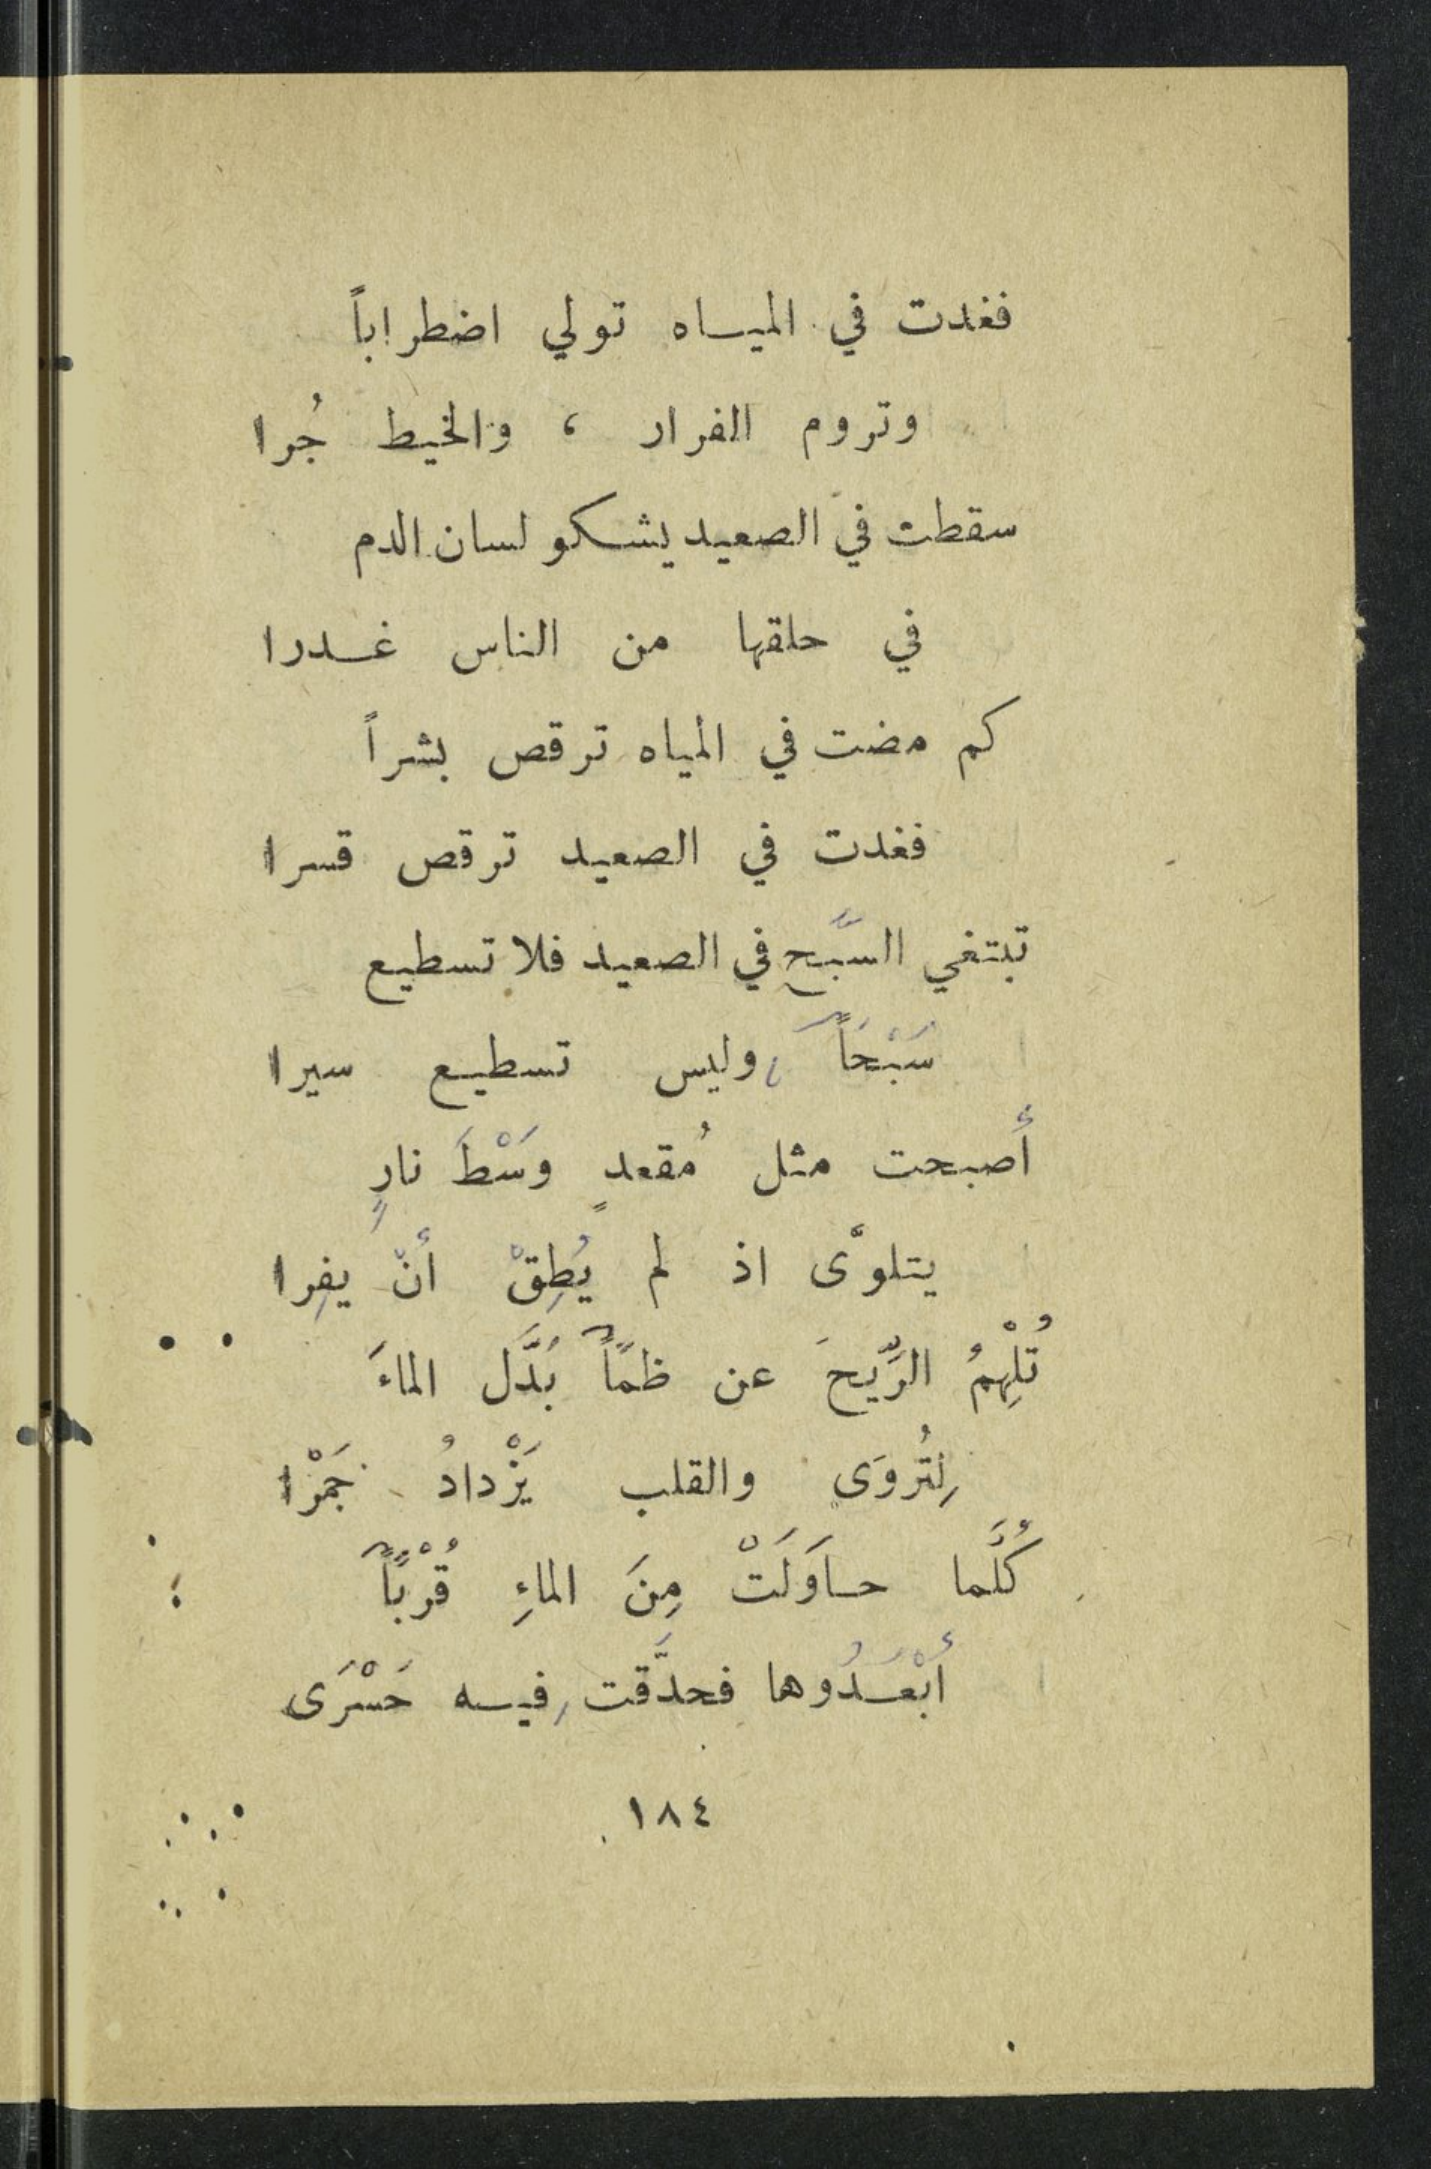 فغدت في المياه تولي اضطراباً
وتروم الفرار ، والخيط جُرا
سقطت في الصعيد يشكو لسان الدم
في حلقها من الناس غدرا
كم مضت في المياه ترقص بشراً
فغدت في الصعيد ترقص قسرا
تبتغي السَّبح في الصعيد فلا تسطيع
سَبْحَاً وليس تسطيع سيرا
أصبحت مثل مُقعدٍ وَسْطَ نارٍ
يتلوَّى اذ لم يُطِقْ أنْ يفِرا
تُلْهِمُ الرِّيحَ عن ظمًأ بُدَّل الماءَ
لِتُروَى والقلب يَزْدادُ جَمْرا
كُلَّما حاوَلَتْ مِنَ الماءِ قُرْبًاً
أبْعَدُوها فحدَّقت فيه حَسْرَى
١٨٤